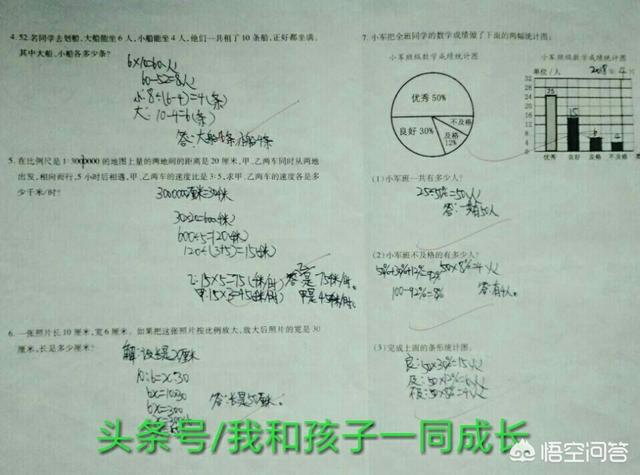 4. 52名同学去划船,大船能坐6人,小船能坐4人,他们一共租了10条船,正好都坐满。
其中大船、小船各多少条?
6×10=60人
60-52=8人
小:8÷(6-4)=4(条)
大:10-4=6(条)
5. 在比例尺是1:3000000的地图上量的两地间的距离是20厘米,甲、乙两车同时从两地
出发,相向而行,5小时后相遇,甲、乙两车的速度比是3:5,求甲、乙两车的速度各是多
少千米/时?
3000000厘米=30千米
30×20=600千米
600÷5=120千米
120÷(3+5)=15千米
乙:15×5=75(千米/时)
甲:15×3=45(千米/时)
6. 一张照片长10厘米,宽6厘米。如果把这张照片按比例放大,放大后照片的宽是30
厘米,长是多少厘米?
10:6=x:30
6x=10×30
6x=300
答:长是50厘米。
7. 小军把全班同学的数学成绩做了下面的两幅统计图。
小军班级数学成绩统计图
优秀50%
良好30%
及格
12%
不及格
小军班级数学成绩统计图
单位/人
2018年4月
25
15
6
4
优秀
良好
及格
不及格
(1)小军班一共有多少人?
25÷50%=50人
答:一共有50人
(2)小军班不及格的有多少人?
50%+30%+12%=92%
50×8%=4人
100-92%=8%
答:有4人。
(3)完成上面的条形统计图。
良:50×30%=15人
及:50×12%=6人
50×8%=4人
头条号/我和孩子一同成长
悟空问答